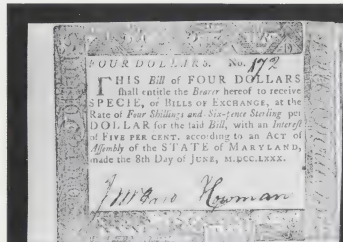 FOUR DOLLARS. No. 172
THIS Bill of FOUR DOLLARS
shall entitle the Bearer hereof to receive
SPECIE, or BILLS OF EXCHANGE, at the
Rate of Four Shillings and Six-pence Sterling per
DOLLAR for the said Bill, with an Interest
of FIVE PER CENT. according to an ACT of
Assembly of the STATE of MARYLAND,
made the 8th Day of JUNE, M.DCC.LXXX.